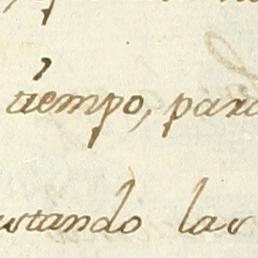 tiempo, para
stando las